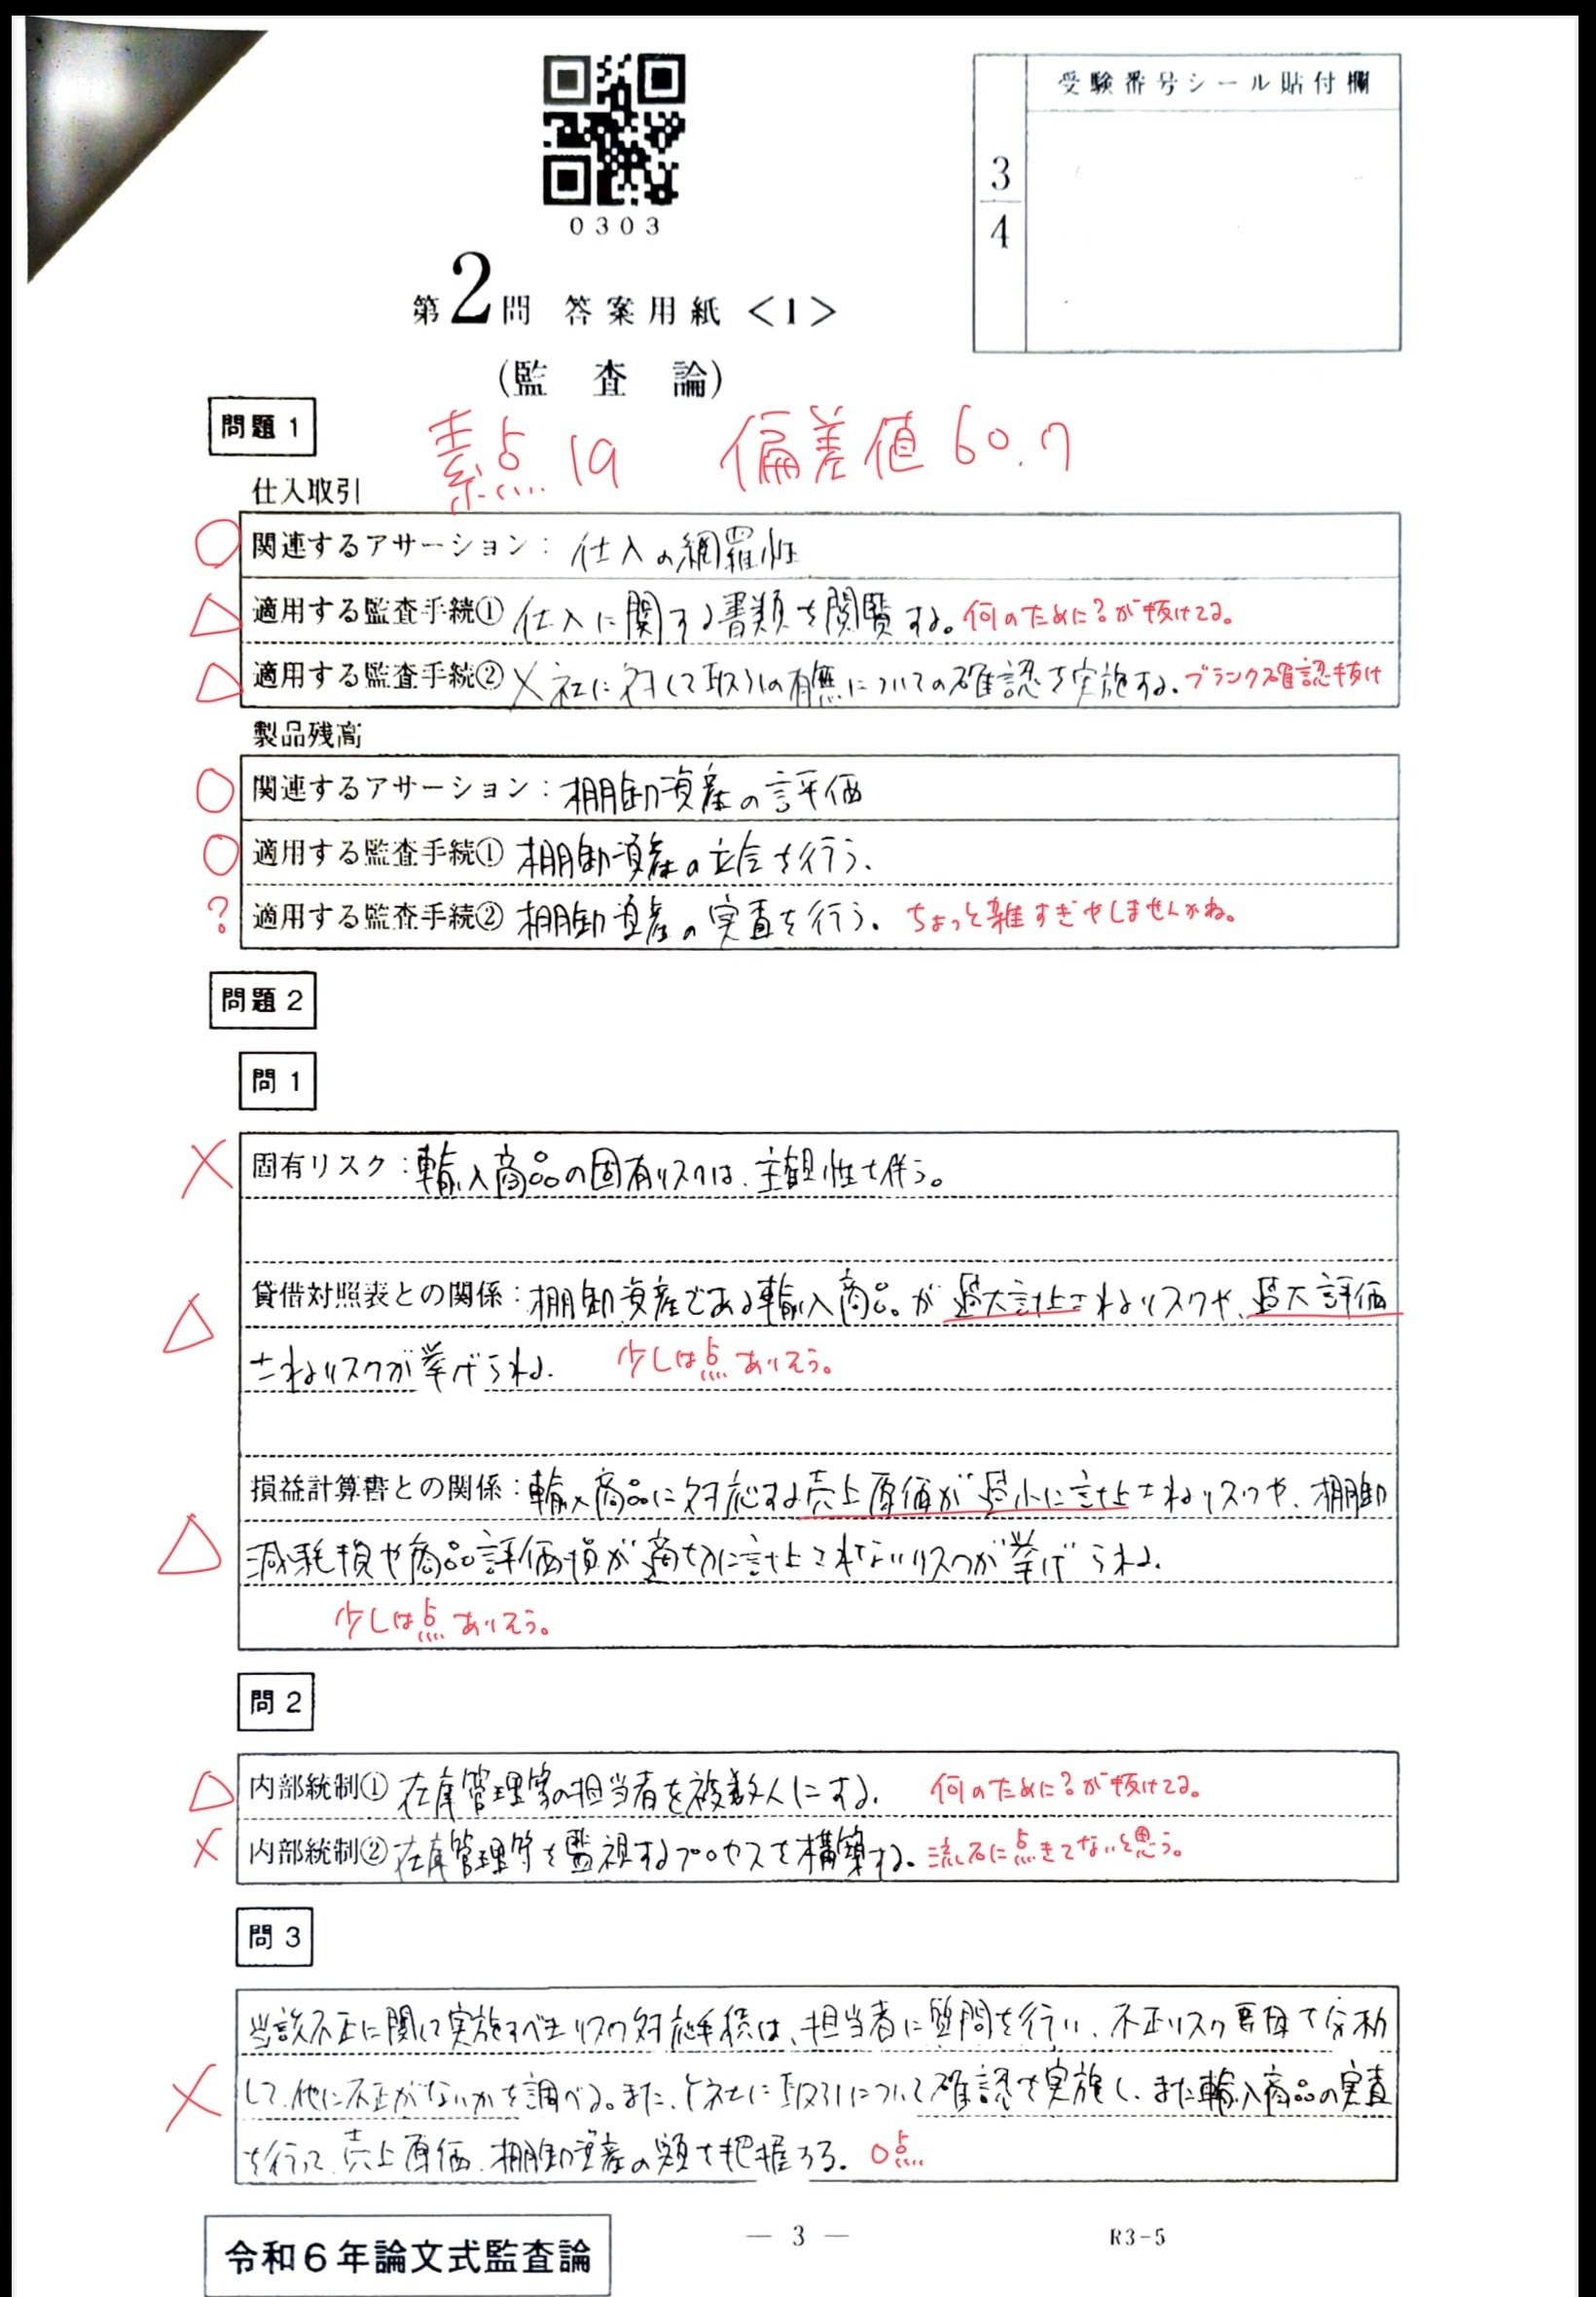 受験番号シール貼付欄
3
4
0303
第2問 答案用紙<1>
(監査論)
問題1
素点 19 偏差値 60.7
仕入取引
関連するアサーション: 仕入の網羅性
適用する監査手続① 仕入に関する書類を閲覧する。何のために?が抜けてる。
適用する監査手続② X社に対して取引の有無についての確認を実施する。ブランク確認抜け
製品残高
関連するアサーション: 棚卸資産の評価
適用する監査手続① 棚卸資産の立会を行う。
適用する監査手続② 棚卸資産の実査を行う。ちょっと雑すぎやしませんかね。
問題2
問1
固有リスク: 輸入商品の固有リスクは、主観性を伴う。
貸借対照表との関係: 棚卸資産である輸入商品が過大計上されるリスクや、過大評価
されるリスクが挙げられる。 少しは点ありそう。
損益計算書との関係: 輸入商品に対応する売上原価が過小に計上されるリスクや、棚卸
減耗損や商品評価損が適切に計上されないリスクが挙げられる。
少しは点ありそう。
問2
内部統制① 在庫管理等の担当者を複数人にする。 何のために?が抜けてる。
内部統制② 在庫管理等を監視するプロセスを構築する。流石に点きてないと思う。
問3
当該不正に関して実施すべきリスク対応手続は、担当者に質問を行い、不正リスク要因を分析
して、他に不正がないかを調べる。また、Y社に取引について確認を実施し、また輸入商品の実査
を行って、売上原価、棚卸資産の額を把握する。0点
― 3 ―
R3-5
令和6年論文式監査論